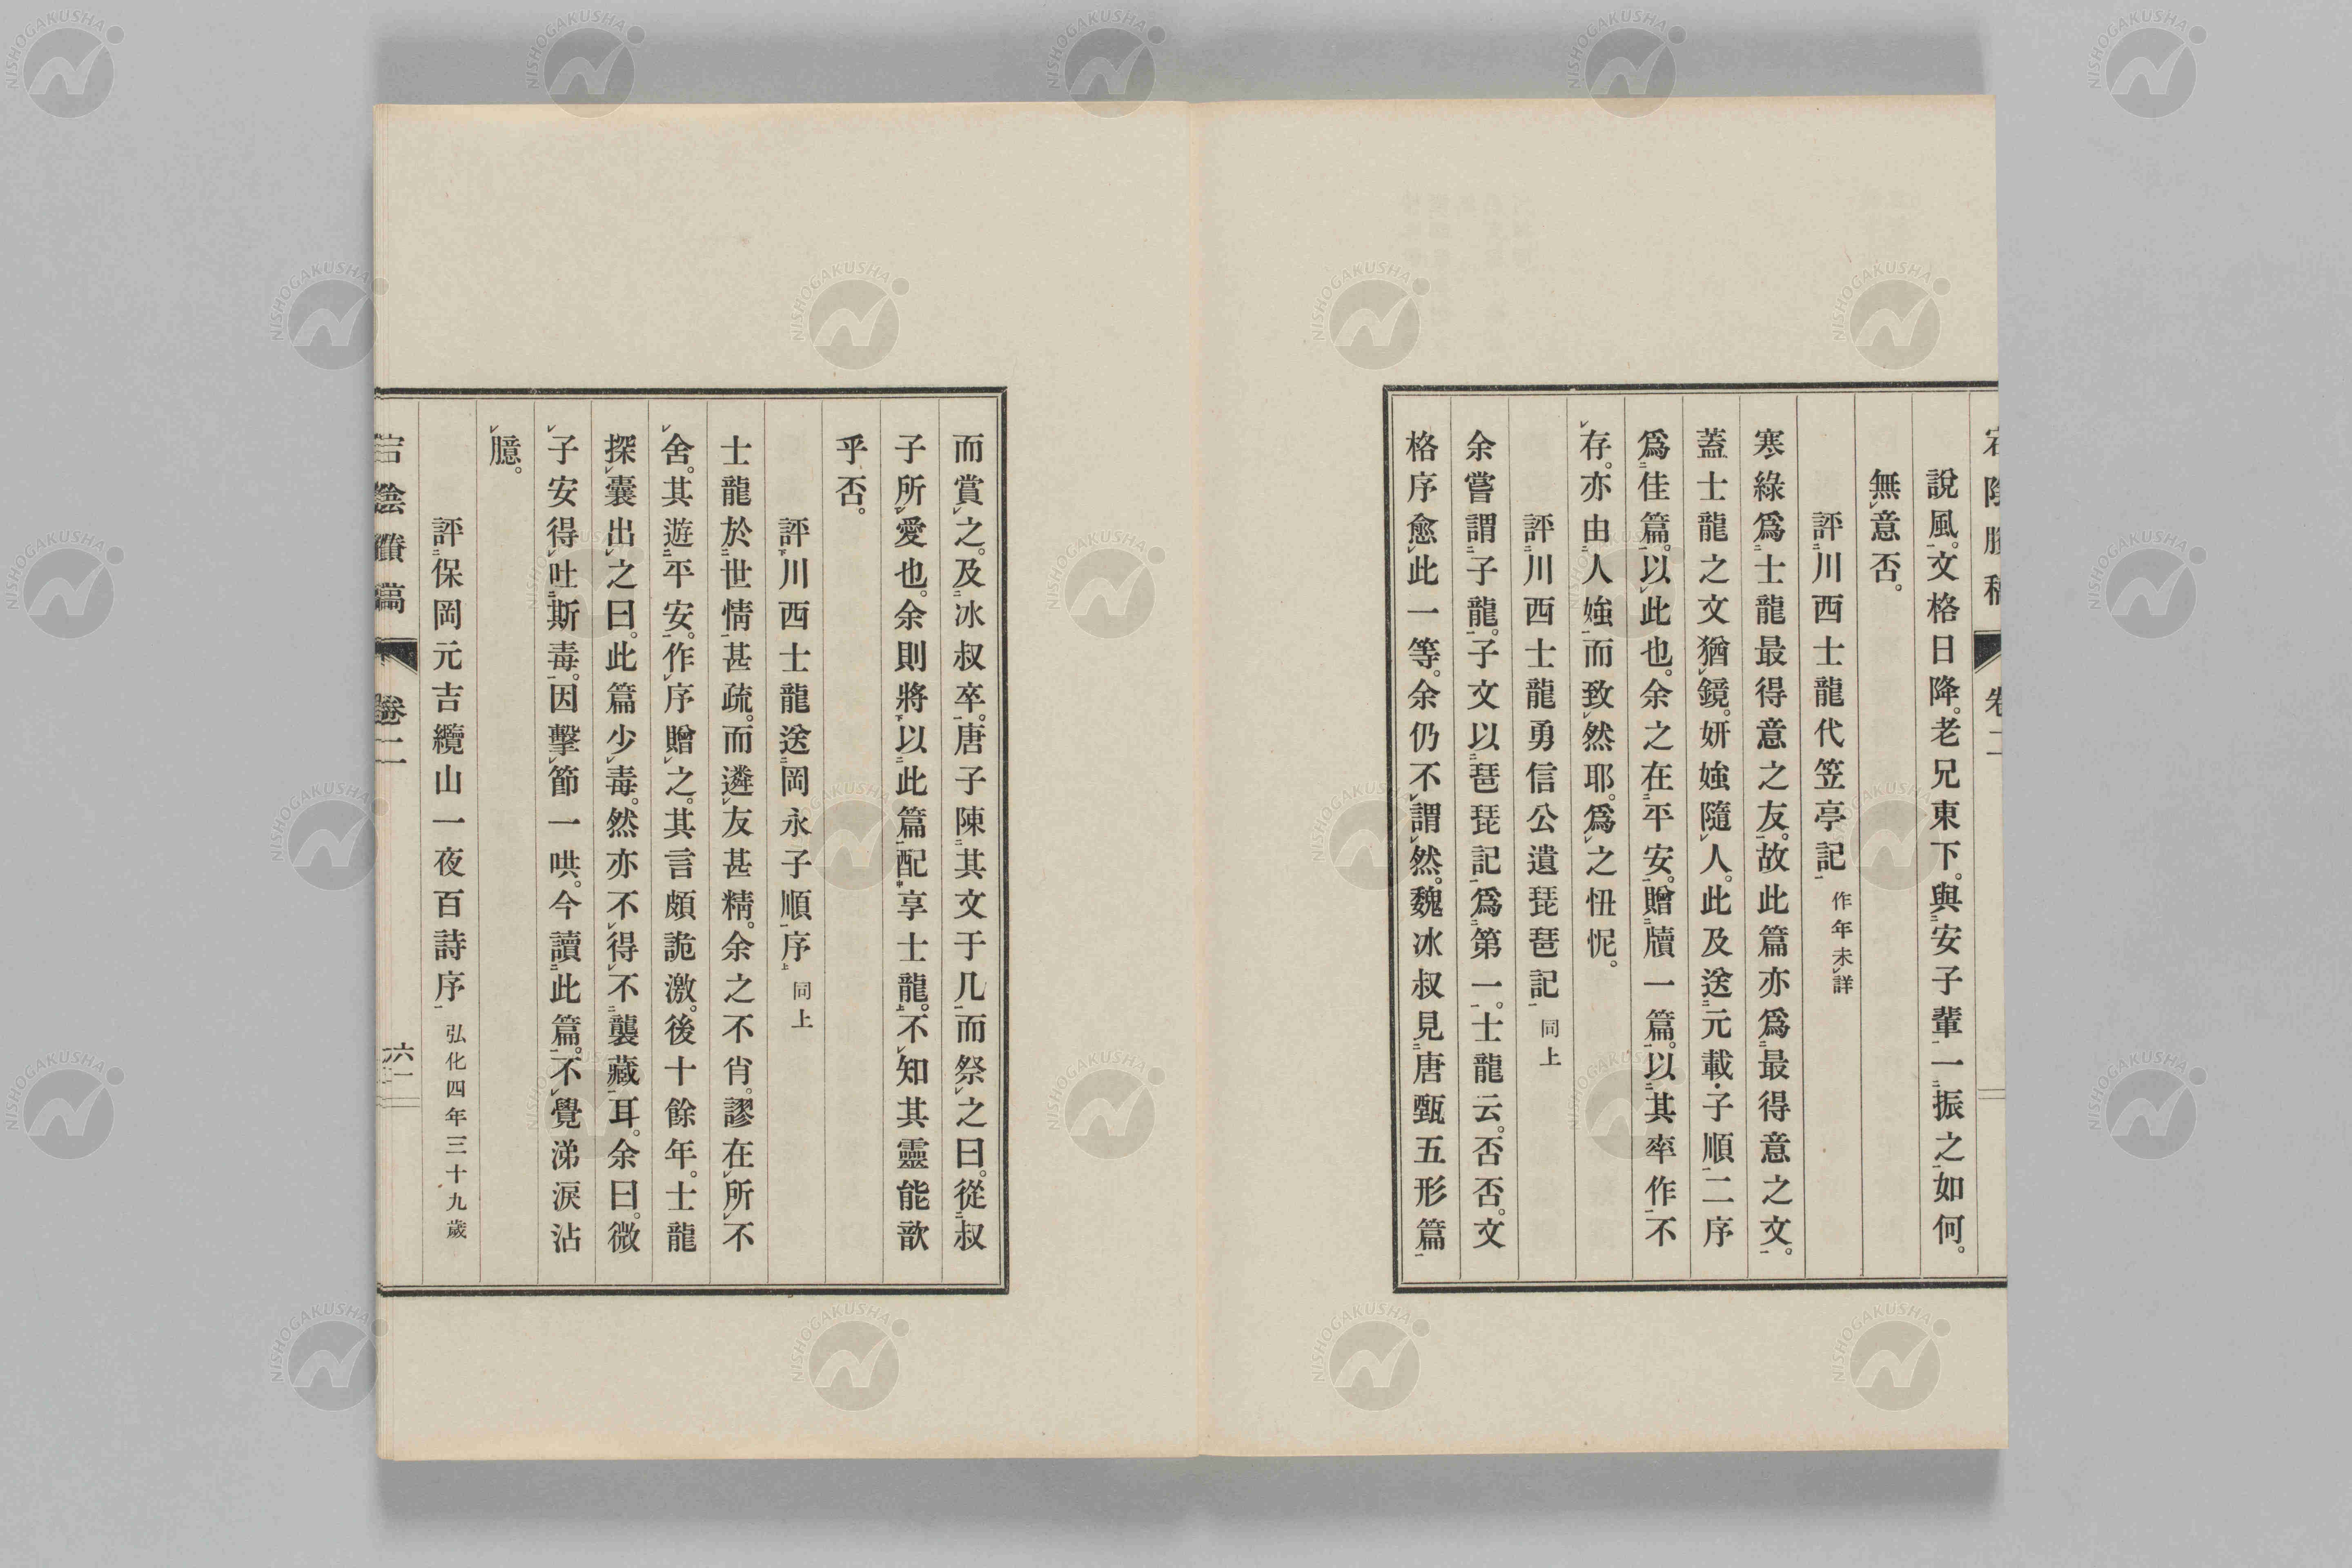 宕陰賸稿 卷二
說風。文格日降。老兄東下。與安子輩一振之如何。
無意否。
評川西士龍代笠亭記 作年未詳
寒綠爲士龍最得意之友。故此篇亦爲最得意之文。
蓋士龍之文猶鏡。妍媸隨人。此及送元載・子順二序
爲佳篇。以此也。余之在平安。贈牘一篇。以其率作不
存。亦由人媸而致然耶。爲之忸怩。
評川西士龍勇信公遺琵琶記 同上
余嘗謂子龍。子文以琵琶記爲第一。士龍云。否否。文
格序愈此一等。余仍不謂然。魏冰叔見唐甄五形篇
而賞之。及冰叔卒。唐子陳其文于几而祭之曰。從叔
子所愛也。余則將以此篇配享士龍。不知其靈能歆
乎否。
評川西士龍送岡永子順序 同上
士龍於世情甚疏。而遴友甚精。余之不肖。謬在所不
舍。其遊平安。作序贈之。其言頗詭激。後十餘年。士龍
探囊出之曰。此篇少毒。然亦不得不襲藏耳。余曰。微
子安得吐斯毒。因擊節一哄。今讀此篇。不覺涕淚沾
臆。
評保岡元吉纜山一夜百詩序 弘化四年三十九歲
宕陰賸稿 卷二 六一
NISHOGAKUSHA